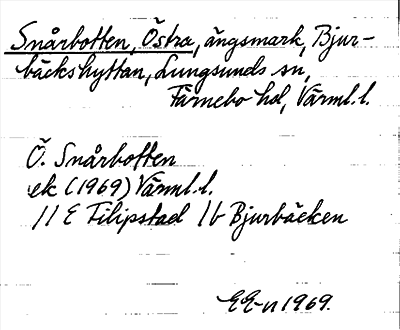 Snårbotten, Östra, ängsmark, Bjur-
bäckshyttan, Lungsunds sn,
Färnebo hd, Värml. l.
Ö. Snårbotten
ek (1969) Värml. l.
11 E Filipstad 1b Bjurbäcken
EE-n 1969.